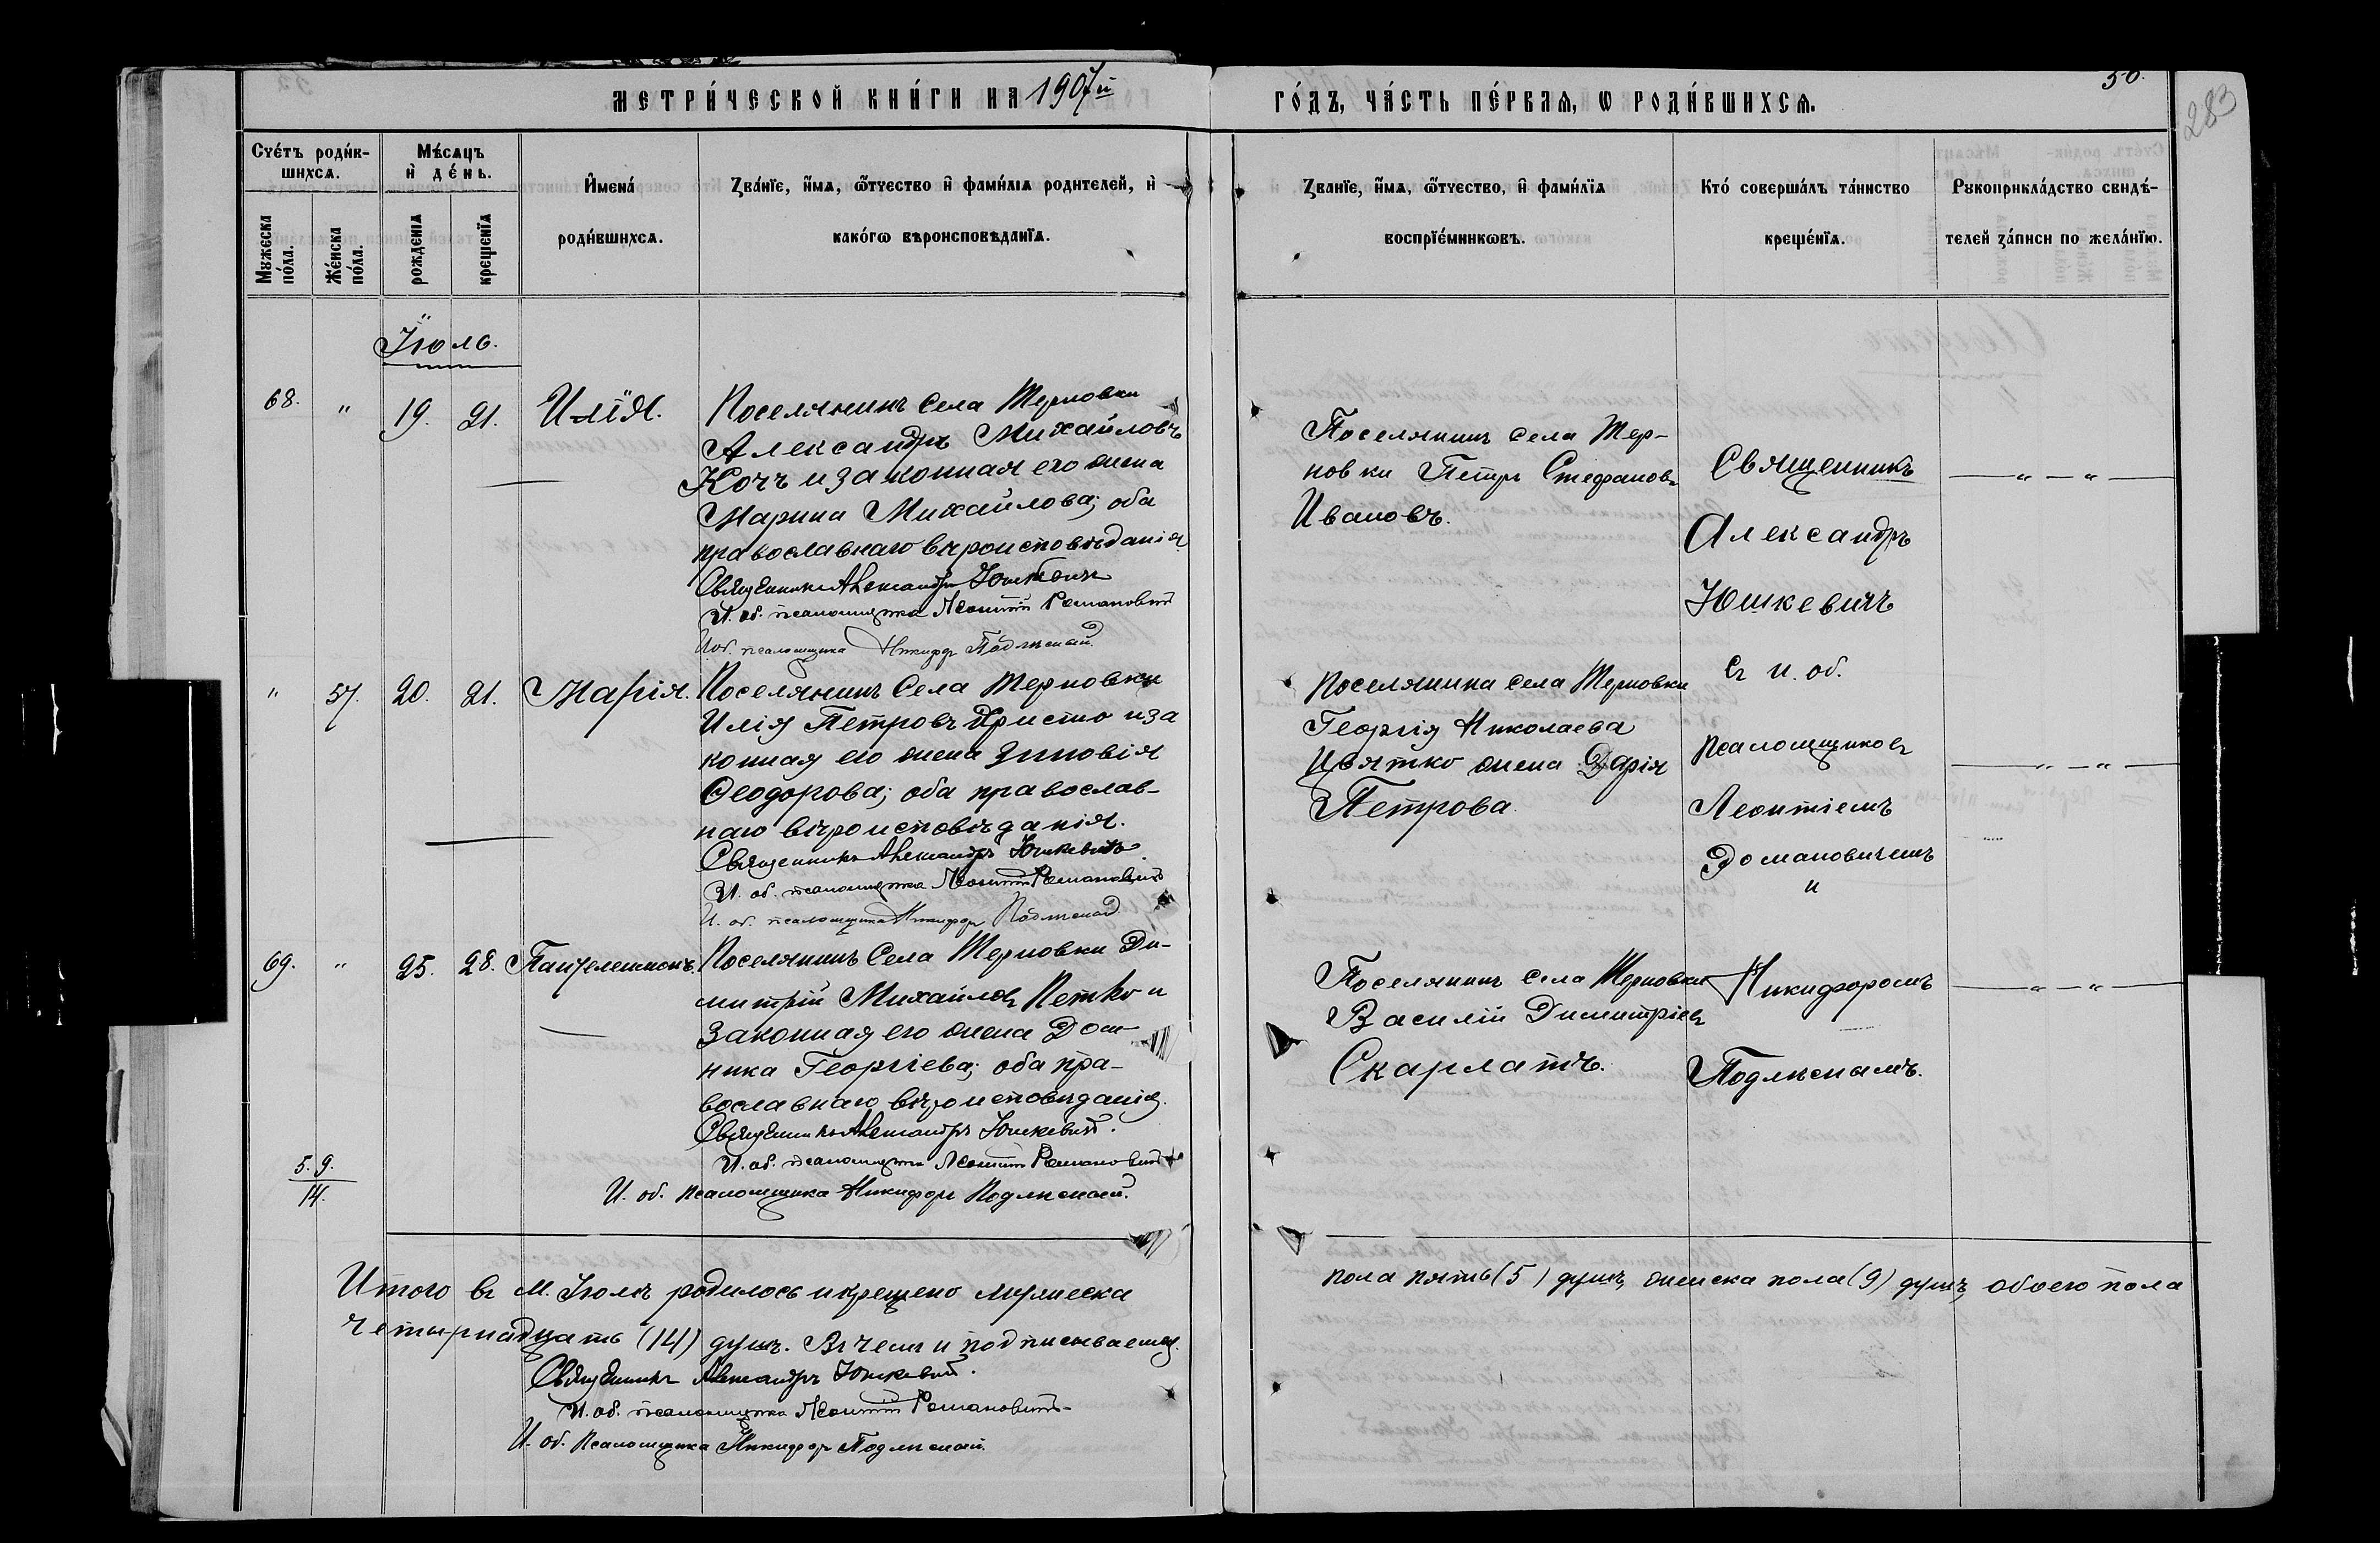 МЕТРИ́ЧЕСКОЙ КНИ́ГИ НА 1907й
ГО́ДЪ, ЧА́СТЬ ПЕ́РВАѦ, Ѡ РОДИ́ВШИХСѦ.
50.
283
Сче́тъ роди́в-
шихсѧ.
Мѣ́сѧцъ
и҆ де́нь.
Мꙋжеска по́ла.
Же́нска по́ла.
рожденїѧ
крещенїѧ
И҆мена́
роди́вшихсѧ.
Зва́нїе, и҆́мѧ, ѻ҆́тчество и҆ фами́лїѧ родителей, и҆
како́гѡ вѣроисповѣданїѧ.
Званїе, и҆́мѧ, ѻ҆́тчество, и҆ фами́лїѧ
воспрїе́мникѡвъ.
Кто́ соверша́лъ та́инство
креще́нїѧ.
Рꙋкоприкла́дство свидѣ́-
телей за́писи по жела́нїю.
Іюль.
68. " 19. 21. Илія.
Поселянинъ села Терновки
Александръ Михайловъ
Кочъ и законная его жена
Марина Михайлова; оба
православнаго вѣроисповѣданія
Священникъ Александръ Юшкевичъ
И. об. псаломщика Леонтій Романовичъ
И об. псаломщика Никифоръ Подлѣсный.
Поселянинъ села Тер-
новки Петръ Стефановъ
Ивановъ.
Священникъ
Александръ
Юшкевичъ
съ и. об.
псаломщиковъ
Леонтіемъ
Романовичемъ
и
Никифоромъ
Подлѣснымъ.
" 57. 20. 21. Марія.
Поселянинъ села Терновки
Илія Петровъ Христо и за
конная его жена Зиновія
Ѳеодорова; оба православ-
наго вѣроисповѣданія.
Священникъ Александръ Юшкевичъ.
И. об. псаломщика Леонтій Романовичъ
И. об. псаломщика Никифоръ Подлѣсный
Поселянина села Терновки
Георгія Николаева
Цвятко жена Дарія
Петрова.
69. " 25. 28. Пантелеимонъ.
Поселянинъ села Терновки Ди-
митрій Михайловъ Петко и
законная его жена Дом-
ника Георгіева; оба пра-
вославнаго вѣроисповѣданія.
Священникъ Александръ Юшкевичъ.
И. об. псаломщика Леонтій Романовичъ
И. об. псаломщика Никифоръ Подлѣсный.
Поселянинъ села Терновки
Василій Димитріевъ
Скарлатъ.
5. 9.
14.
Итого въ м. Іюлѣ родилось и крещено мужеска
пола пять (5) душъ, женска пола (9) душъ, обоего пола
четырнадцать (14) душъ. Въ чемъ и подписываемся.
Священникъ Александръ Юшкевичъ.
И. об. псаломщика Леонтій Романовичъ
И. об. псаломщика Никифоръ Подлѣсный.